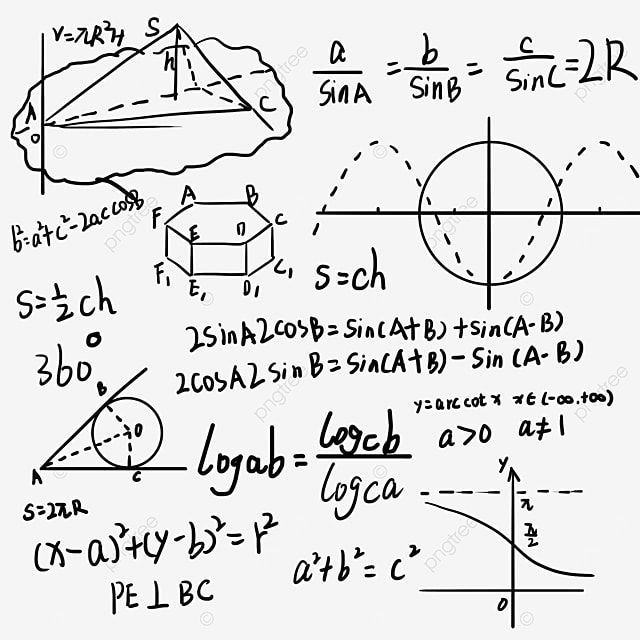 V=πR²H
S
h
A
O
C
a/SinA = b/SinB = c/SinC = 2R
b²=a²+c²-2accosB
A B
F C
E D
F₁ C₁
E₁ D₁
S=ch
S=½ch
360°
2SinA2cosB=Sin(A+B)+Sin(A-B)
2cosA2SinB=Sin(A+B)-Sin(A-B)
B
O
A C
y=arccotx x∈(-∞,+∞)
a>0 a≠1
logab=logcb/logca
S=2πR
(x-a)²+(y-b)²=r²
PE⊥BC
a²+b²=c²
y
π
π/2
O
pngtree